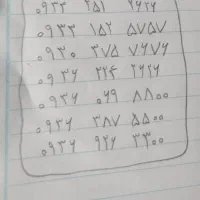 ۰۹۳۳ ۲۵۱ ۲۶۲۶
۰۹۳۳ ۱۵۲ ۵۷۵۷
۰۹۳۰ ۳۷۵ ۷۶۷۶
۰۹۳۶ ۲۲۴ ۲۶۲۶
۰۹۳۶ ۰۶۹ ۸۸۰۰
۰۹۳۶ ۳۸۷ ۵۵۰۰
۰۹۳۶ ۹۲۶ ۳۳۰۰